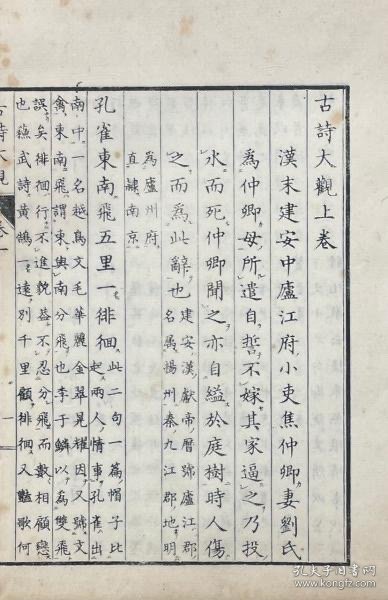 古詩大觀上卷
漢末建安中廬江府小吏焦仲卿妻劉氏
為仲卿母所遣自誓不嫁其家逼之乃投
水而死仲卿聞之亦自縊於庭樹時人傷
之而為此辭也
建安漢獻帝曆號廬江郡
名屬揚州秦九江郡地明
為廬州府
直隸南京
孔雀東南飛五里一徘徊
此二句一篇帽子比
起兩人情事孔雀出
南中一名越鳥文毛華麗金翠晃耀因又號文
禽東南飛謂東與南分飛也李于鱗以為雙飛
誤矣徘徊行不進貌蓋不忍分飛而數相顧戀
也蘇武詩黃鵠一遠別千里顧徘徊又艷歌何
古詩大觀
孔夫子旧书网